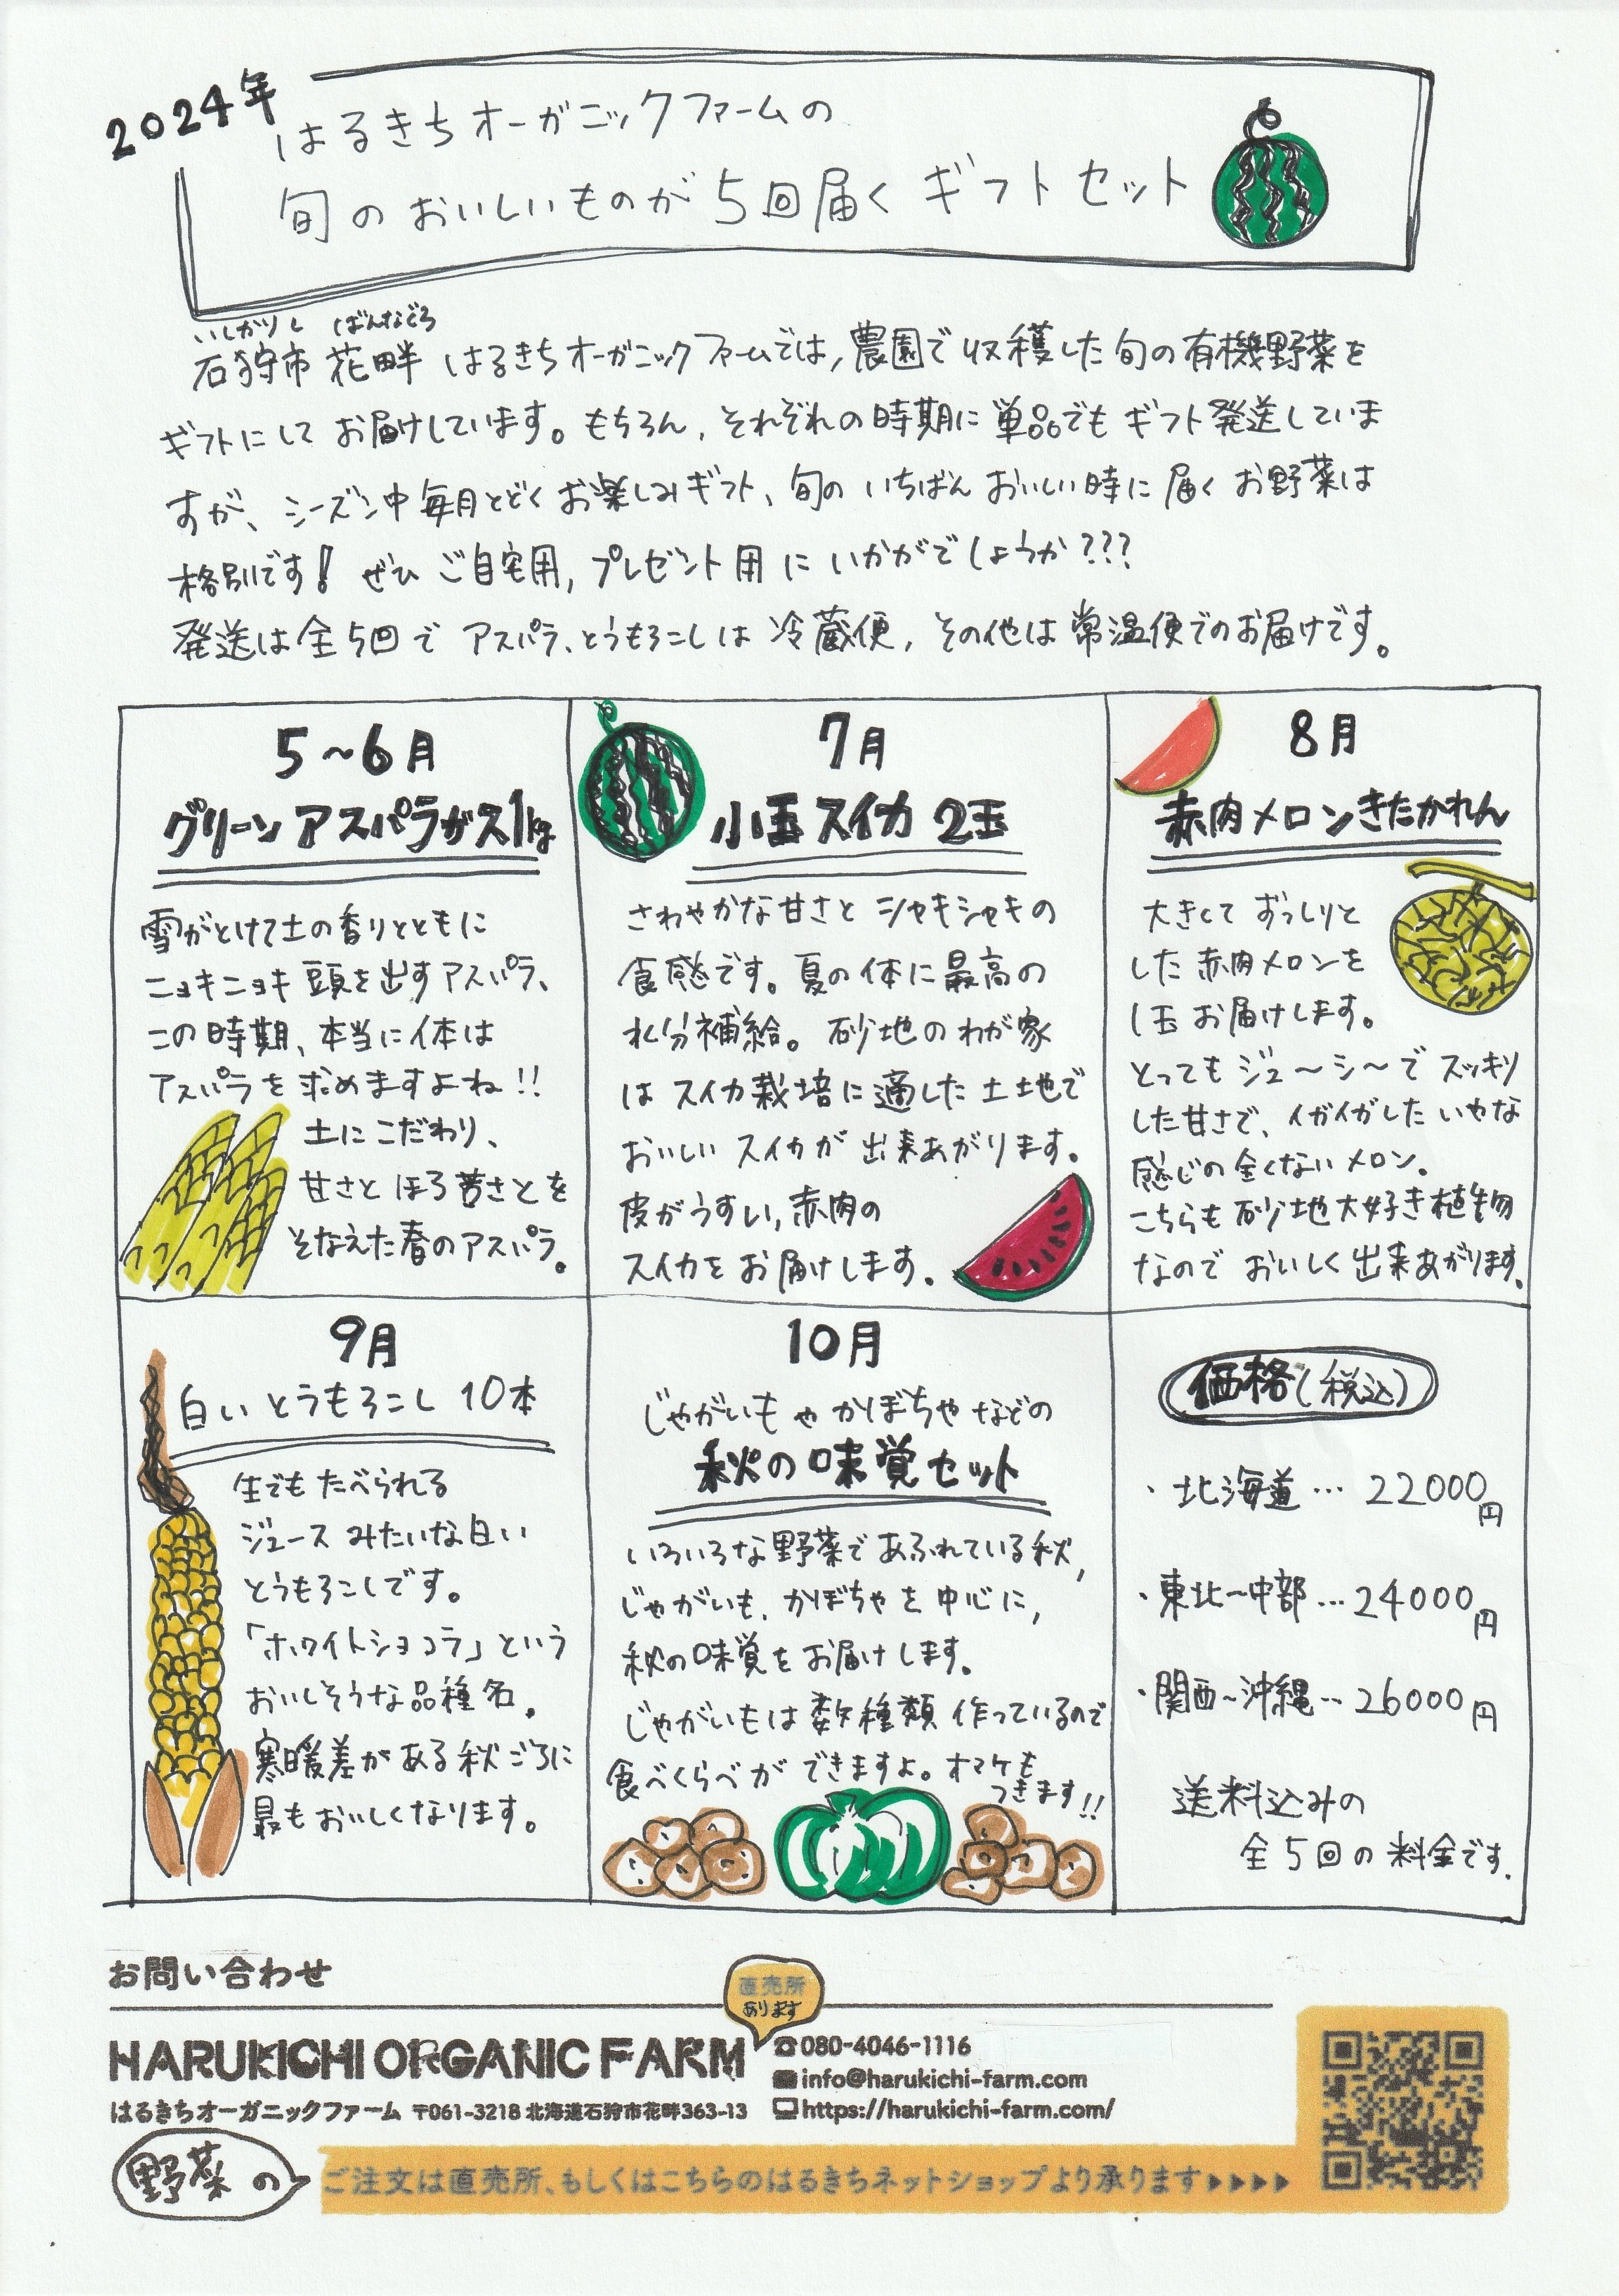 2024年
はるきちオーガニックファームの
旬のおいしいものが5回届くギフトセット
いしかりし ばんなぐろ
石狩市 花畔 はるきちオーガニックファームでは,農園で収穫した旬の有機野菜を
ギフトにして お届けしています。もちろん、それぞれの時期に単品でもギフト発送していま
すが、シーズン中毎月とどくお楽しみギフト、旬のいちばんおいしい時に届くお野菜は
格別です! ぜひ ご自宅用,プレゼント用にいかがでしょうか???
発送は全5回で アスパラ、とうもろこしは冷蔵便,その他は常温便でのお届けです。
5~6月
グリーンアスパラガス1kg
雪がとけて土の香りとともに
ニョキニョキ頭を出すアスパラ、
この時期、本当に体は
アスパラを求めますよね!!
土にこだわり、
甘さとほろ苦さとを
そなえた春のアスパラ。
7月
小玉スイカ 2玉
さわやかな甘さと シャキシャキの
食感です。夏の体に最高の
水分補給。砂地のわが家
は スイカ栽培に適した土地で
おいしい スイカが 出来あがります。
皮がうすい,赤肉の
スイカをお届けします。
8月
赤肉メロンきたかれん
大きくて ずっしりと
した 赤肉メロンを
1玉お届けします。
とってもジュ〜シ〜で スッキリ
した甘さで、イガイガした いやな
感じの全くないメロン。
こちらも砂地大好き植物
なので おいしく出来あがります。
9月
白い とうもろこし 10本
生でもたべられる
ジュース みたいな白い
とうもろこしです。
「ホワイトショコラ」という
おいしそうな品種名。
寒暖差がある秋ごろに
最もおいしくなります。
10月
じゃがいも や かぼちゃ などの
秋の味覚セット
いろいろな野菜であふれている秋,
じゃがいも、かぼちゃを中心に,
秋の味覚をお届けします。
じゃがいもは数種類 作っているので
食べくらべが できますよ。オマケも
つきます!!
価格(税込)
・北海道… 22000円
・東北〜中部…24000円
・関西〜沖縄…26000円
送料込みの
全5回の料金です.
お問い合わせ
直売所
あります
HARUKICHI ORGANIC FARM
☎080-4046-1116
info@harukichi-farm.com
はるきちオーガニックファーム 〒061-3218 北海道石狩市花畔363-13
https://harukichi-farm.com/
野菜の
ご注文は直売所、もしくはこちらのはるきちネットショップより承ります▶▶▶▶